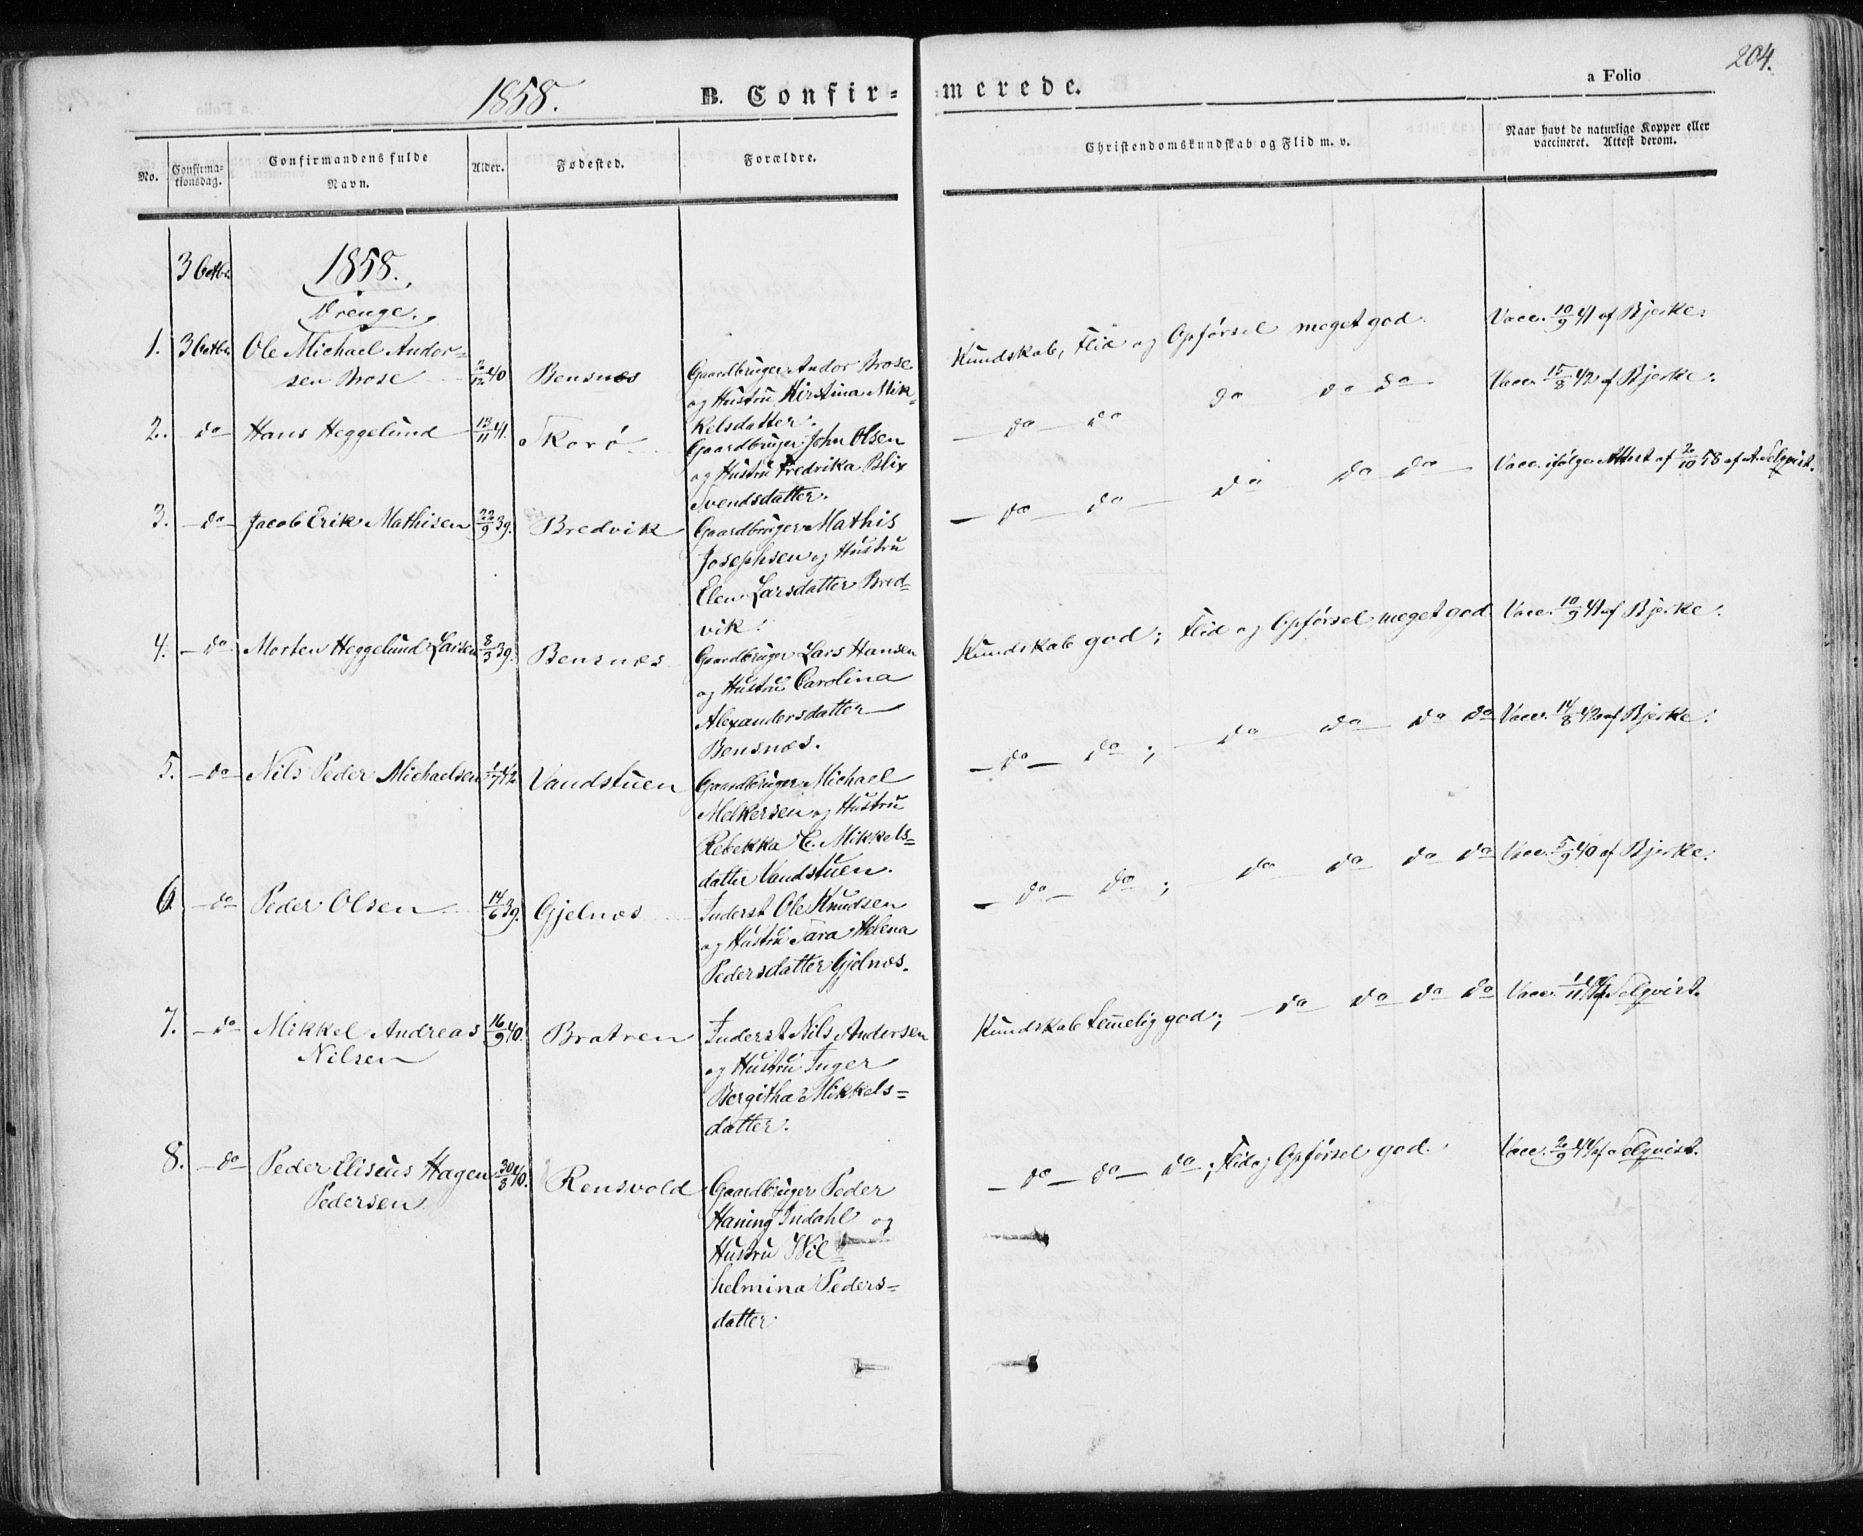 204.
1858. B. Confir= =merede. a Folio
No. Confirma-tionsdag. Confirmandens fulde Navn. Alder. Fødested. Forældre. Christendomskundskab og Flid m. v. Naar havt de naturlige Kopper eller vaccineret. Attest derom.
3 Octbr. 1858.
Drenge.
1. 3 Octbr. Ole Michael Ander=
sen Brose 2/12 40 Bensnæs
Gaardbruger Andor Brose
og Hustru Kirstina Mik=
kelsdatter.
Kundskab, Flid og Opførsel meget god. Vacc. 10/9 41 af Bjerke.
2. do Hans Heggelund 13/11 41. Skorø
Gaardbruger John Olsen
og Hustru Fredrika Blix
Svendsdatter.
do do do do do Vacc. 15/8 42 af Bjerke.
3. do Jacob Erik Mathisen 22/9 39. Bredvik
Gaardbruger Mathis
Josephsen og Hustru
Elen Larsdatter Bred=
vik.
do do do do do Vacc. ifølge Attest af 2/10 58 af A. Selqvist.
4. do Morten Heggelund Larsen 8/3 39. Bensnæs
Gaardbruger Lars Hansen
og Hustru Carolina
Alexandersdatter
Bensnæs.
Kundskab god; Flid og Opførsel meget god Vacc. 10/9 41 af Bjerke.
5. do Nils Peder Michaelsen 1/7 42. Vandstuen
Gaardbruger Michael
Melkersen og Hustru
Rebekka C. Mikkels=
datter Vandstuen.
do do; do do do do Vacc. 14/8 42 af Bjerke.
6. do Peder Olsen 14/6 39. Gjelnæs
Inderst Ole Knudsen
og Hustru Sara Helena
Pedersdatter Gjelnæs.
do do; do do do do Vacc. 5/9 40 af Bjerke.
7. do Mikkel Andreas
Nilsen 16/9 40. Bratren
Inderst Nils Andersen
og Hustru Inger
Bergitha Mikkels=
datter.
Kundskab temelig god; do do do do Vacc. 1/11 af Selqvist.
8. do Peder Eliseus Hagen
Pedersen 30/8 40. Rensvold
Gaardbruger Peder
Haning Indahl og
Hustru Wil=
helmina Peders=
datter
do do do; Flid og Opførsel god. Vacc. 2/9 44 af Selqvist.